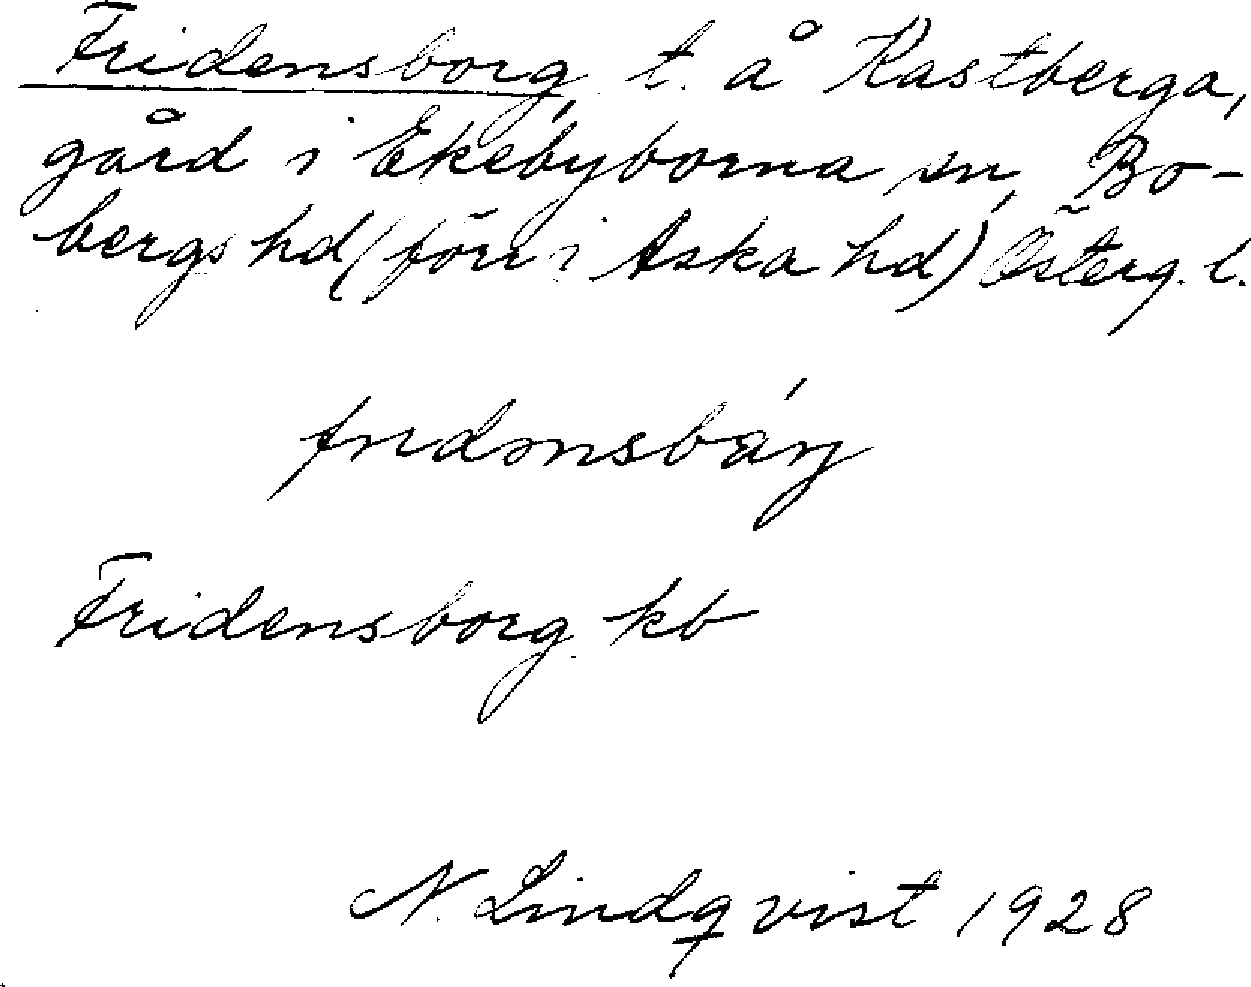 Fridensborg, t. å Kastberga,
gård i Ekebyborna sn, Bo-
bergs hd (förr i Aska hd) Österg. l.
Fridensborg kb
N. Lindqvist 1928